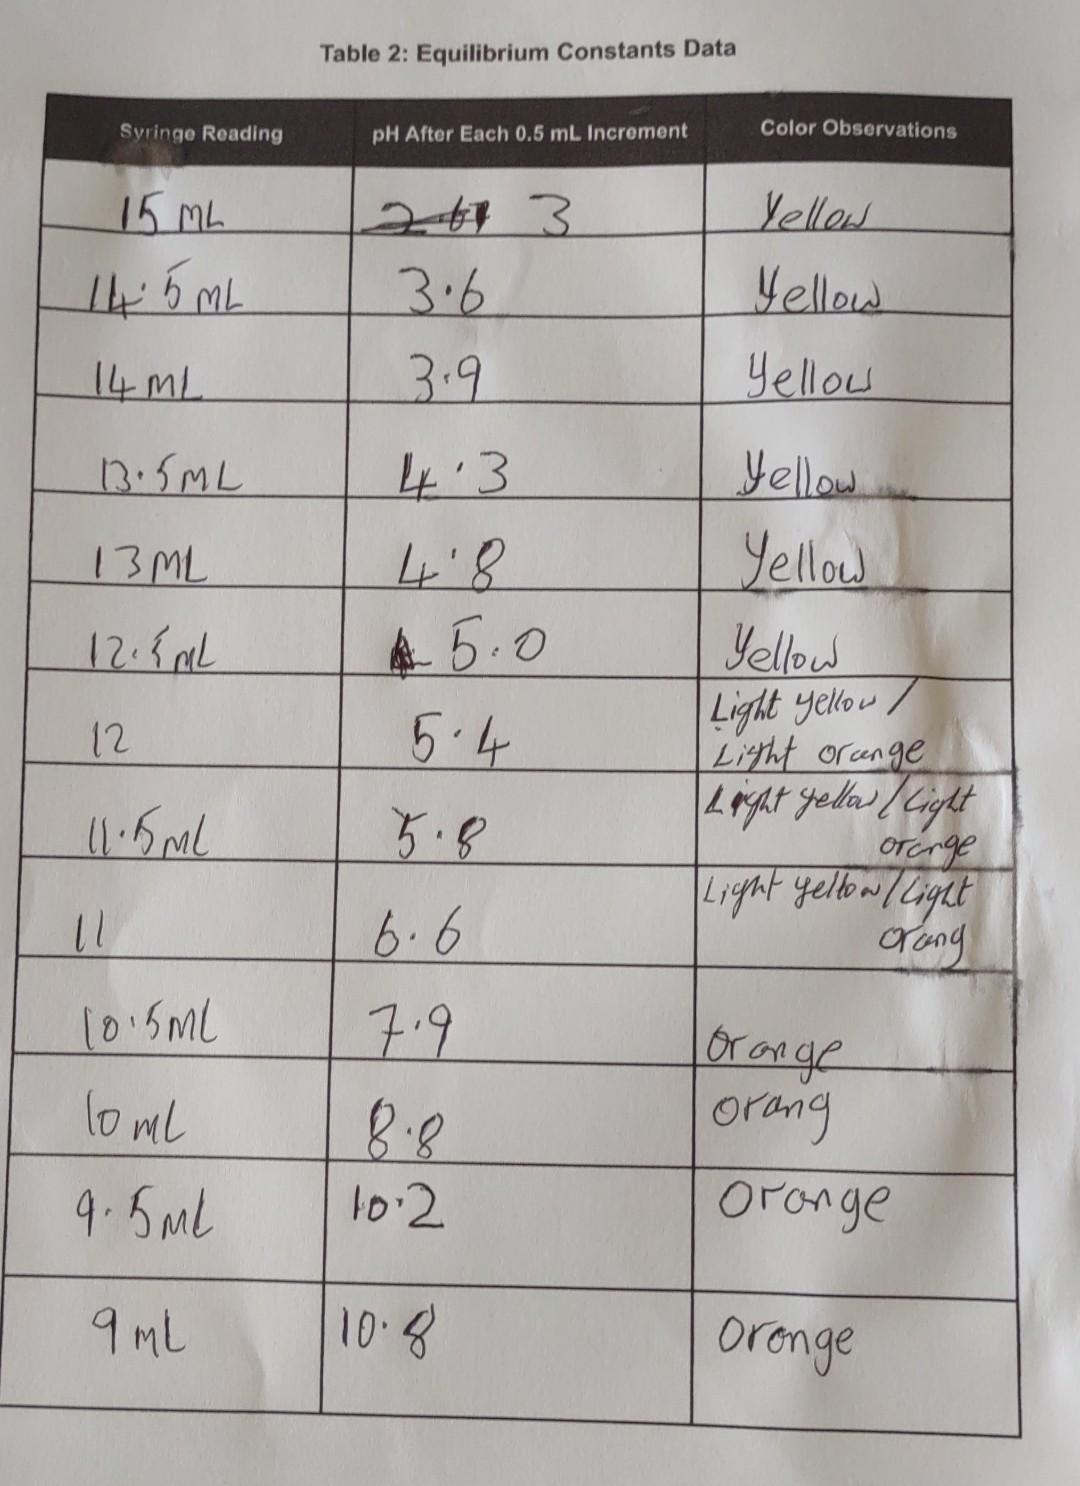 Table 2: Equilibrium Constants Data
Syringe Reading pH After Each 0.5 mL Increment Color Observations
15 mL 3 Yellow
14.5 mL 3.6 Yellow
14 mL 3.9 Yellow
13.5 mL 4.3 Yellow
13 mL 4.8 Yellow
12.5 mL 5.0 Yellow
12 5.4 Light yellow /
Light orange
11.5 mL 5.8 Light yellow / Light
orange
11 6.6 Light yellow / Light
orang
10.5 mL 7.9 Orange
10 mL 8.8 Orang
9.5 mL 10.2 Orange
9 mL 10.8 Orange